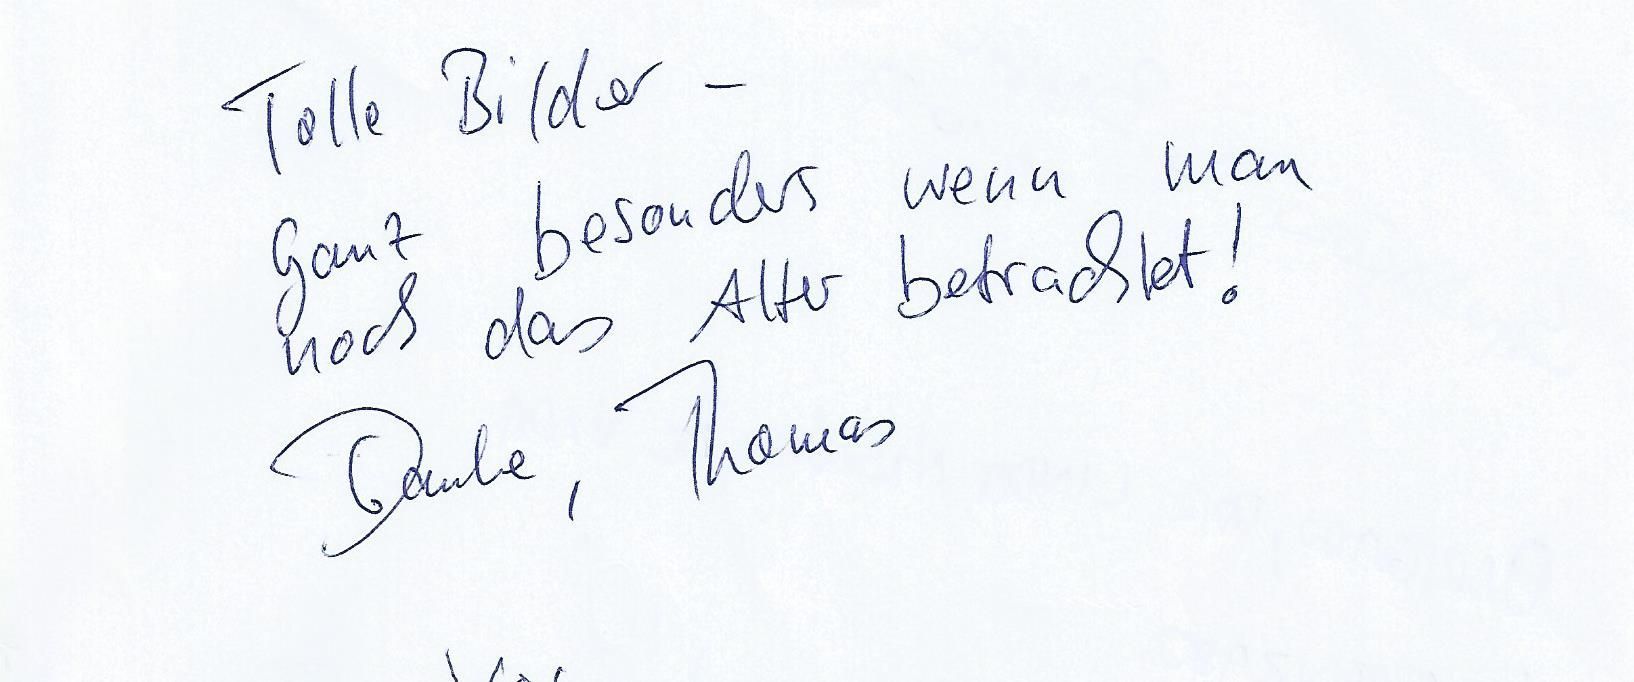 Tolle Bilder –
Ganz besonders wenn man
noch das Alter betrachtet!
Danke, Thomas